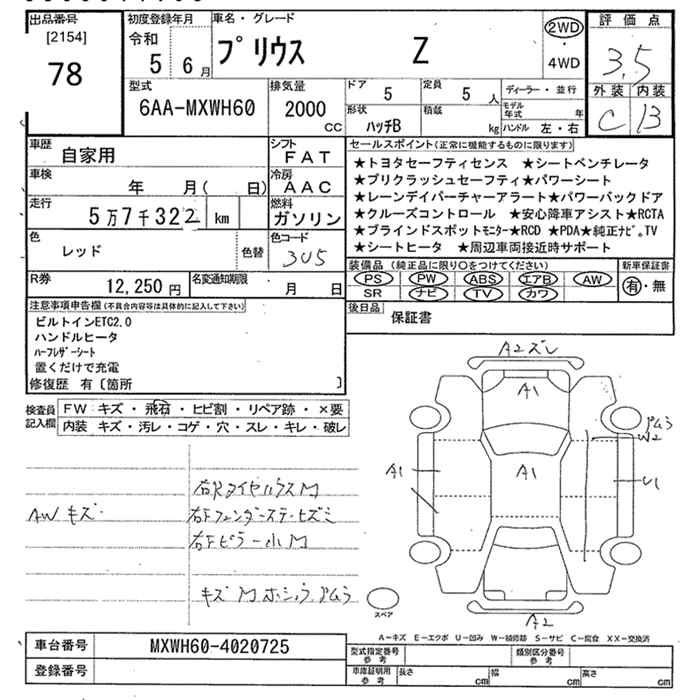 出品番号
[2154]
78
初度登録年月
令和
5 6月
車名・グレード
プリウス Z
2WD
・
4WD
評価点
3.5
外装 内装
C B
型式
6AA-MXWH60
排気量
2000
CC
ドア 5
定員 5 人
ディーラー・並行
形状
ハッチB
積載
kg
モデル年式 年
ハンドル 左・右
車歴
自家用
シフト
FAT
車検
年 月( 日)
冷房
AAC
走行
5万7千322 km
燃料
ガソリン
色
レッド
色替
色コード
3U5
R券
12,250 円
名変通知期限
月 日
セールスポイント(正常に機能するものに限ります)
★トヨタセーフティセンス ★シートベンチレータ
★プリクラッシュセーフティ★パワーシート
★レーンデイパーチャーアラート★パワーバックドア
★クルーズコントロール ★安心降車アシスト★RCTA
★ブラインドスポットモニター★RCD ★PDA★純正ナビ。TV
★シートヒータ ★周辺車両接近時サポート
装備品(純正品に限り〇をつけてください)
PS PW ABS エアB AW
SR ナビ TV カワ
新車保証書
有・無
後日品
保証書
注意事項申告欄(不具合内容等は具体的に記入して下さい)
ビルトインETC2.0
ハンドルヒータ
ハーフレザーシート
置くだけで充電
修復歴 有〔箇所 〕
検査員
記入欄
FW キズ・飛石・ヒビ割・リペア跡・×要
内装 キズ・汚レ・コゲ・穴・スレ・キレ・破レ
AW キズ
右Rタイヤハウス M
右Fフェンダーステーヒズミ
右Fピラー小M
キズ M ホショウ
A2ズレ
A1
A1
A1
W2
U1
A2
スペア
A-キズ E-エクボ U-凹み W-補修跡 S-サビ C-腐食 XX-交換済
車台番号
MXWH60-4020725
登録番号
型式指定番号
参考
類別区分番号
参考
車庫証明用
参考
長さ cm
幅 cm
高さ cm